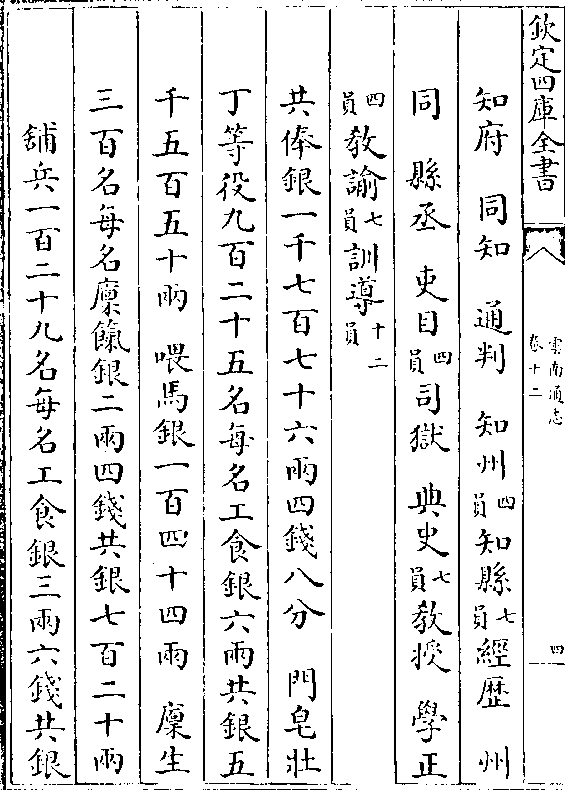 欽定四庫全書
雲南通志
卷十二
四
知府 同知 通判 知州四員知縣七員經歷 州
同 縣丞 吏目四員司獄 典史七員教授 學正
四員教諭七員訓導十二員
共俸銀一千七百七十六兩四錢八分 門皂壯
丁等役九百二十五名每名工食銀六兩共銀五
千五百五十兩 喂馬銀一百四十四兩 廩生
三百名每名廩餼銀二兩四錢共銀七百二十兩
舖兵一百二十九名每名工食銀三兩六錢共銀